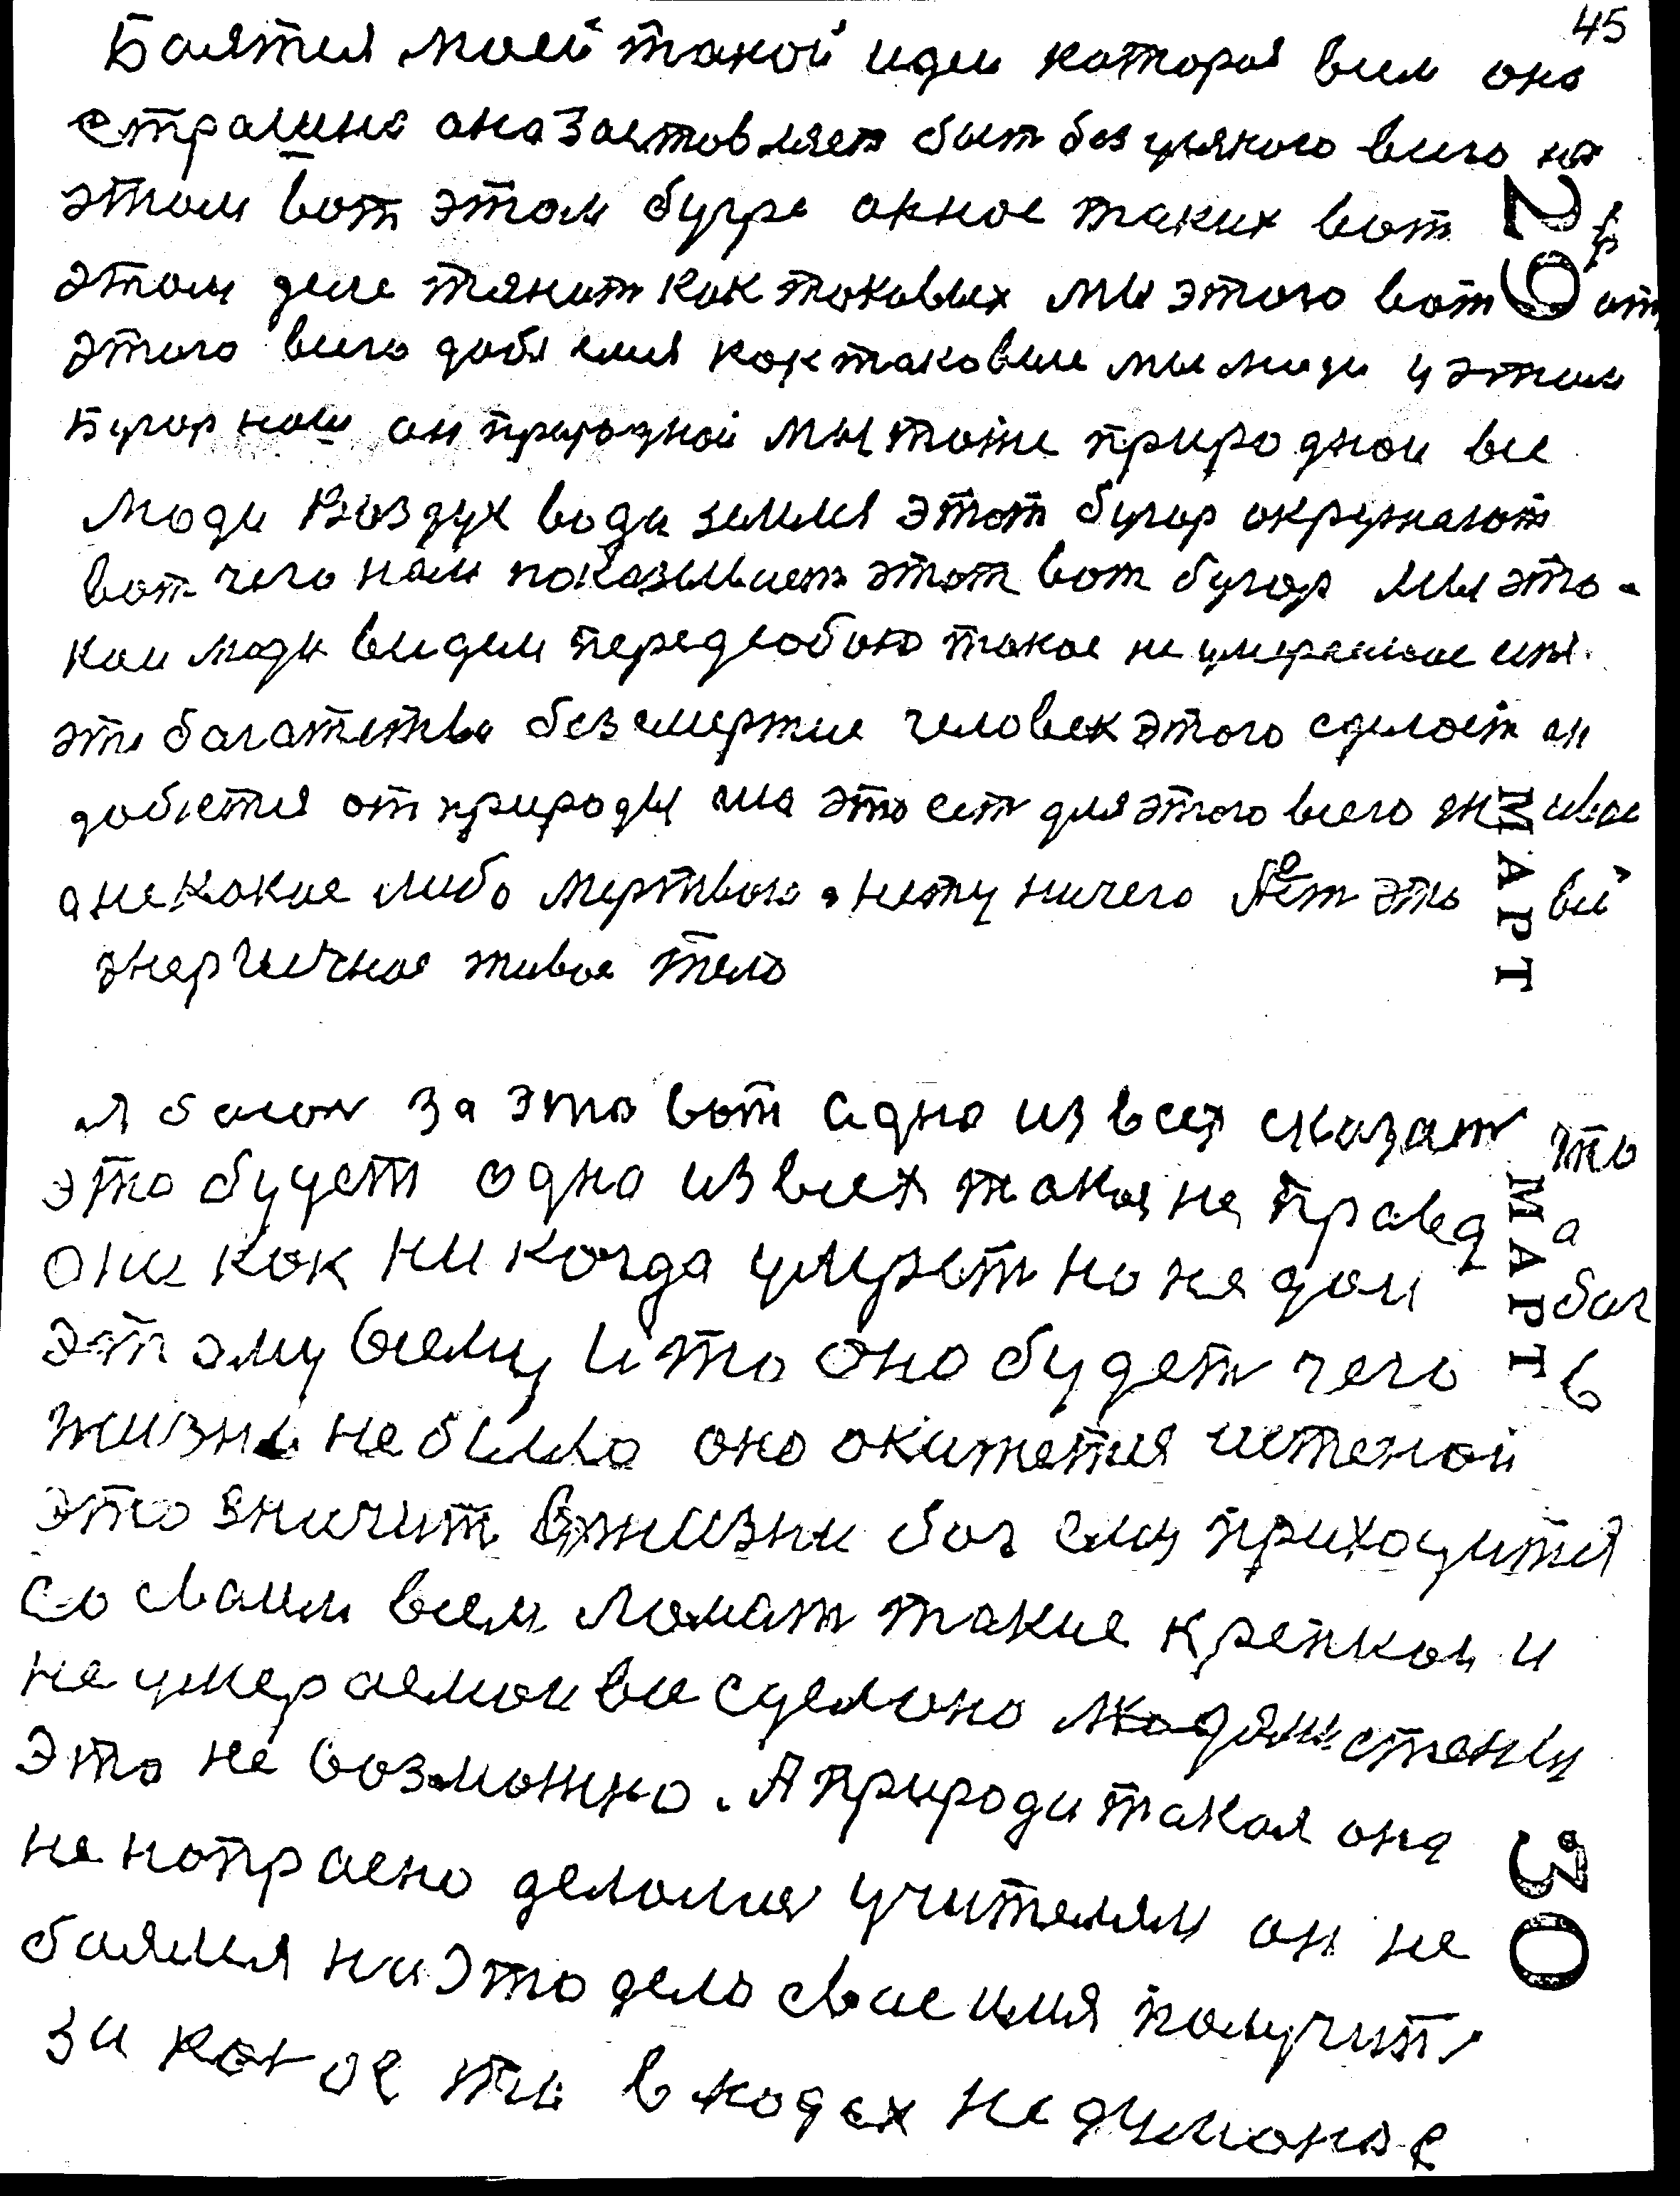 45
Баятся маей такой идеи которая всем она
страшна она заставляет быт без усякого всего на
29
этом вот этом бугре окное таких вот в
этом деле тянит как таковых мы этого вот от
этого всего добялися как таковые мы люди у этам
Бугор наш он природной мы тоже природнои все
люди Воздух вода земля этот бугор окружают
вот чего нам показывает этот вот бугор мы это
кои люди видем перед собою такое не умераемое
это багатство безсмертие человек этого сделает он
добется от природы она это ест для этого всего живое
МАРТ
а не какие либо мертвою нету ничего Нет это всё
энергичное живое тело
я богом за это вот одно из всех сказат то
это будет одно из всех такая не правда
МАРТ
они как ни когда умерет но не дам бог
этому всему и то оно будет чего в
жизни не было оно окажется истеной
это значит в жизни бог ему приходится
со сваим всем ломат такие крепкои и
не умераемои все сделано людям стены
это не возможно. А природа такая она
30
не напрасно делалися учителям он не
баялся на это дело свае имя получит
за кокое то в людях не думоное